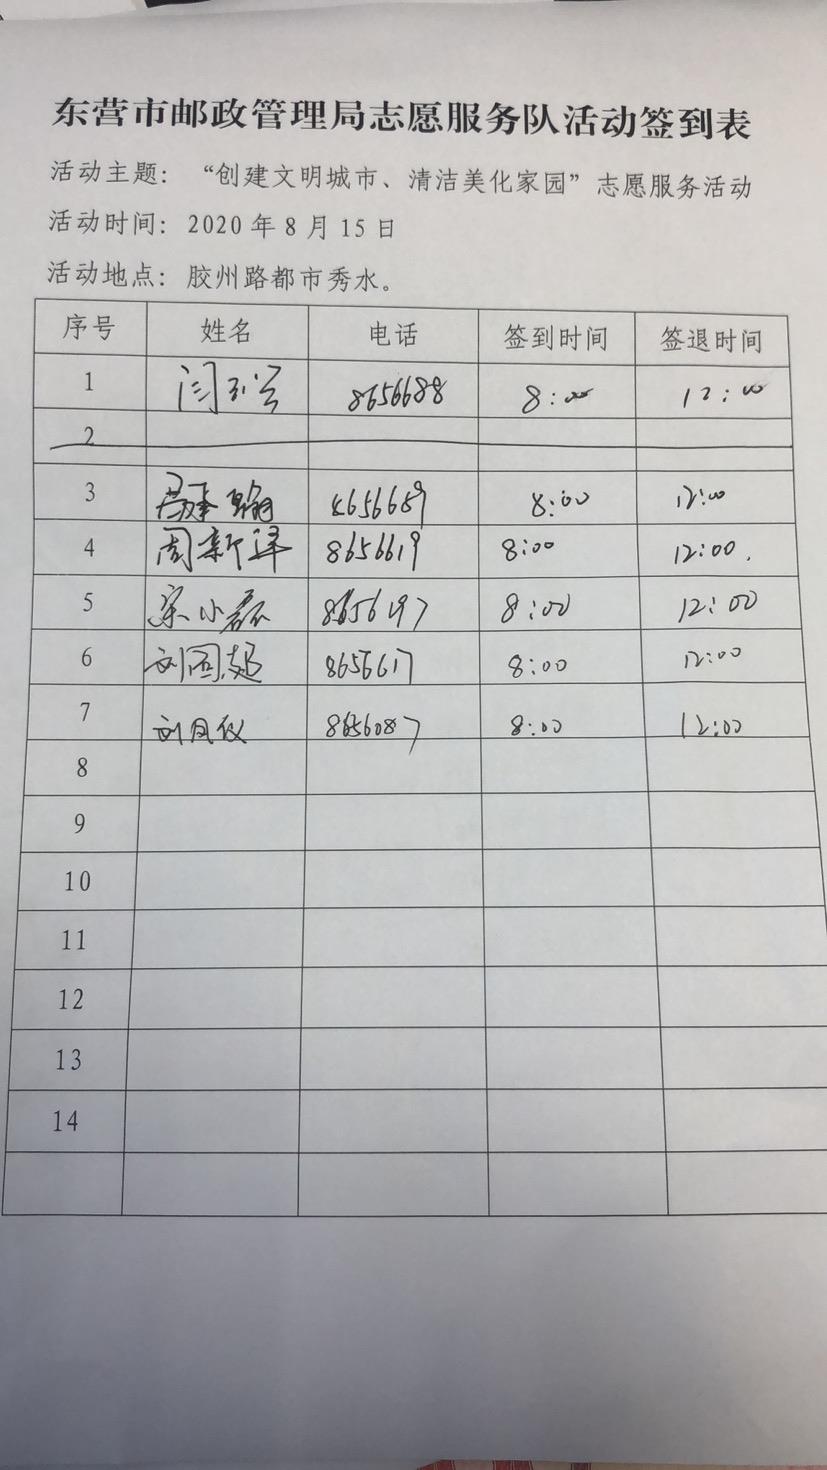 东营市邮政管理局志愿服务队活动签到表
活动主题：“创建文明城市、清洁美化家园”志愿服务活动
活动时间：2020年8月15日
活动地点：胶州路都市秀水。
序号 姓名 电话 签到时间 签退时间
1 闫 8656688 8:00 12:00
2
3 翰 8656689 8:00 12:00
4 周新泽 8656619 8:00 12:00.
5 宋小磊 8656197 8:00 12:00
6 刘国超 8656617 8:00 12:00
7 刘凤仪 8656087 8:00 12:00
8
9
10
11
12
13
14